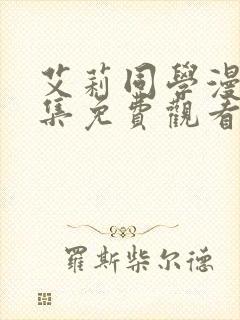 艾莉同學漫
集免費觀看
羅斯柴尔德